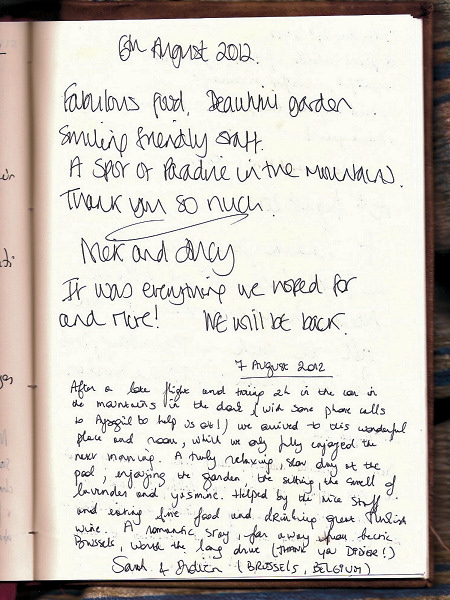 6th August 2012.
Fabulous food, Beautiful garden
Smiling friendly staff.
A Spot of Paradise in the Mountains.
Thank you so much.
and
It was everything we hoped for
and more! We will be back.
7 August 2012
After a late flight and 2h in the car in
the mountains in the dark (with some phone calls
to to help us out!) we arrived to this wonderful
place and room, which we only fully enjoyed the
next morning. A truly relaxing, slow day at the
pool, enjoying the garden, the setting, the smell of
lavender and yasmine. Helped by the nice staff
and eating fine food and drinking great Turkish
wine. A romantic stay, far away from hectic
Brussels, worth the long drive (THANK YOU DIDIER!)
Sarah & (BRUSSELS, BELGIUM)